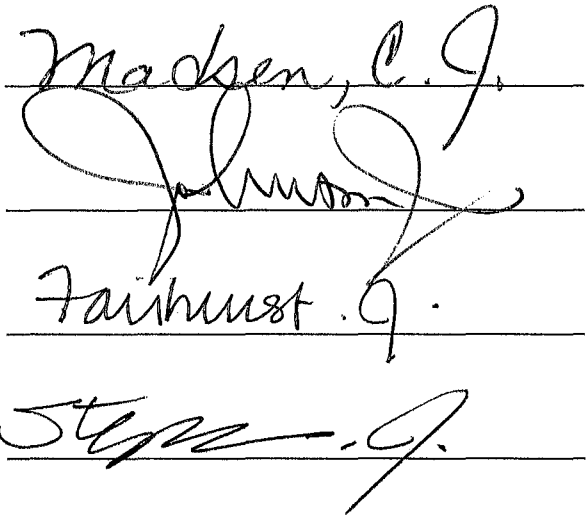 Madsen, C.J.
Johnson, J
Fairhurst. J.
Step . J.